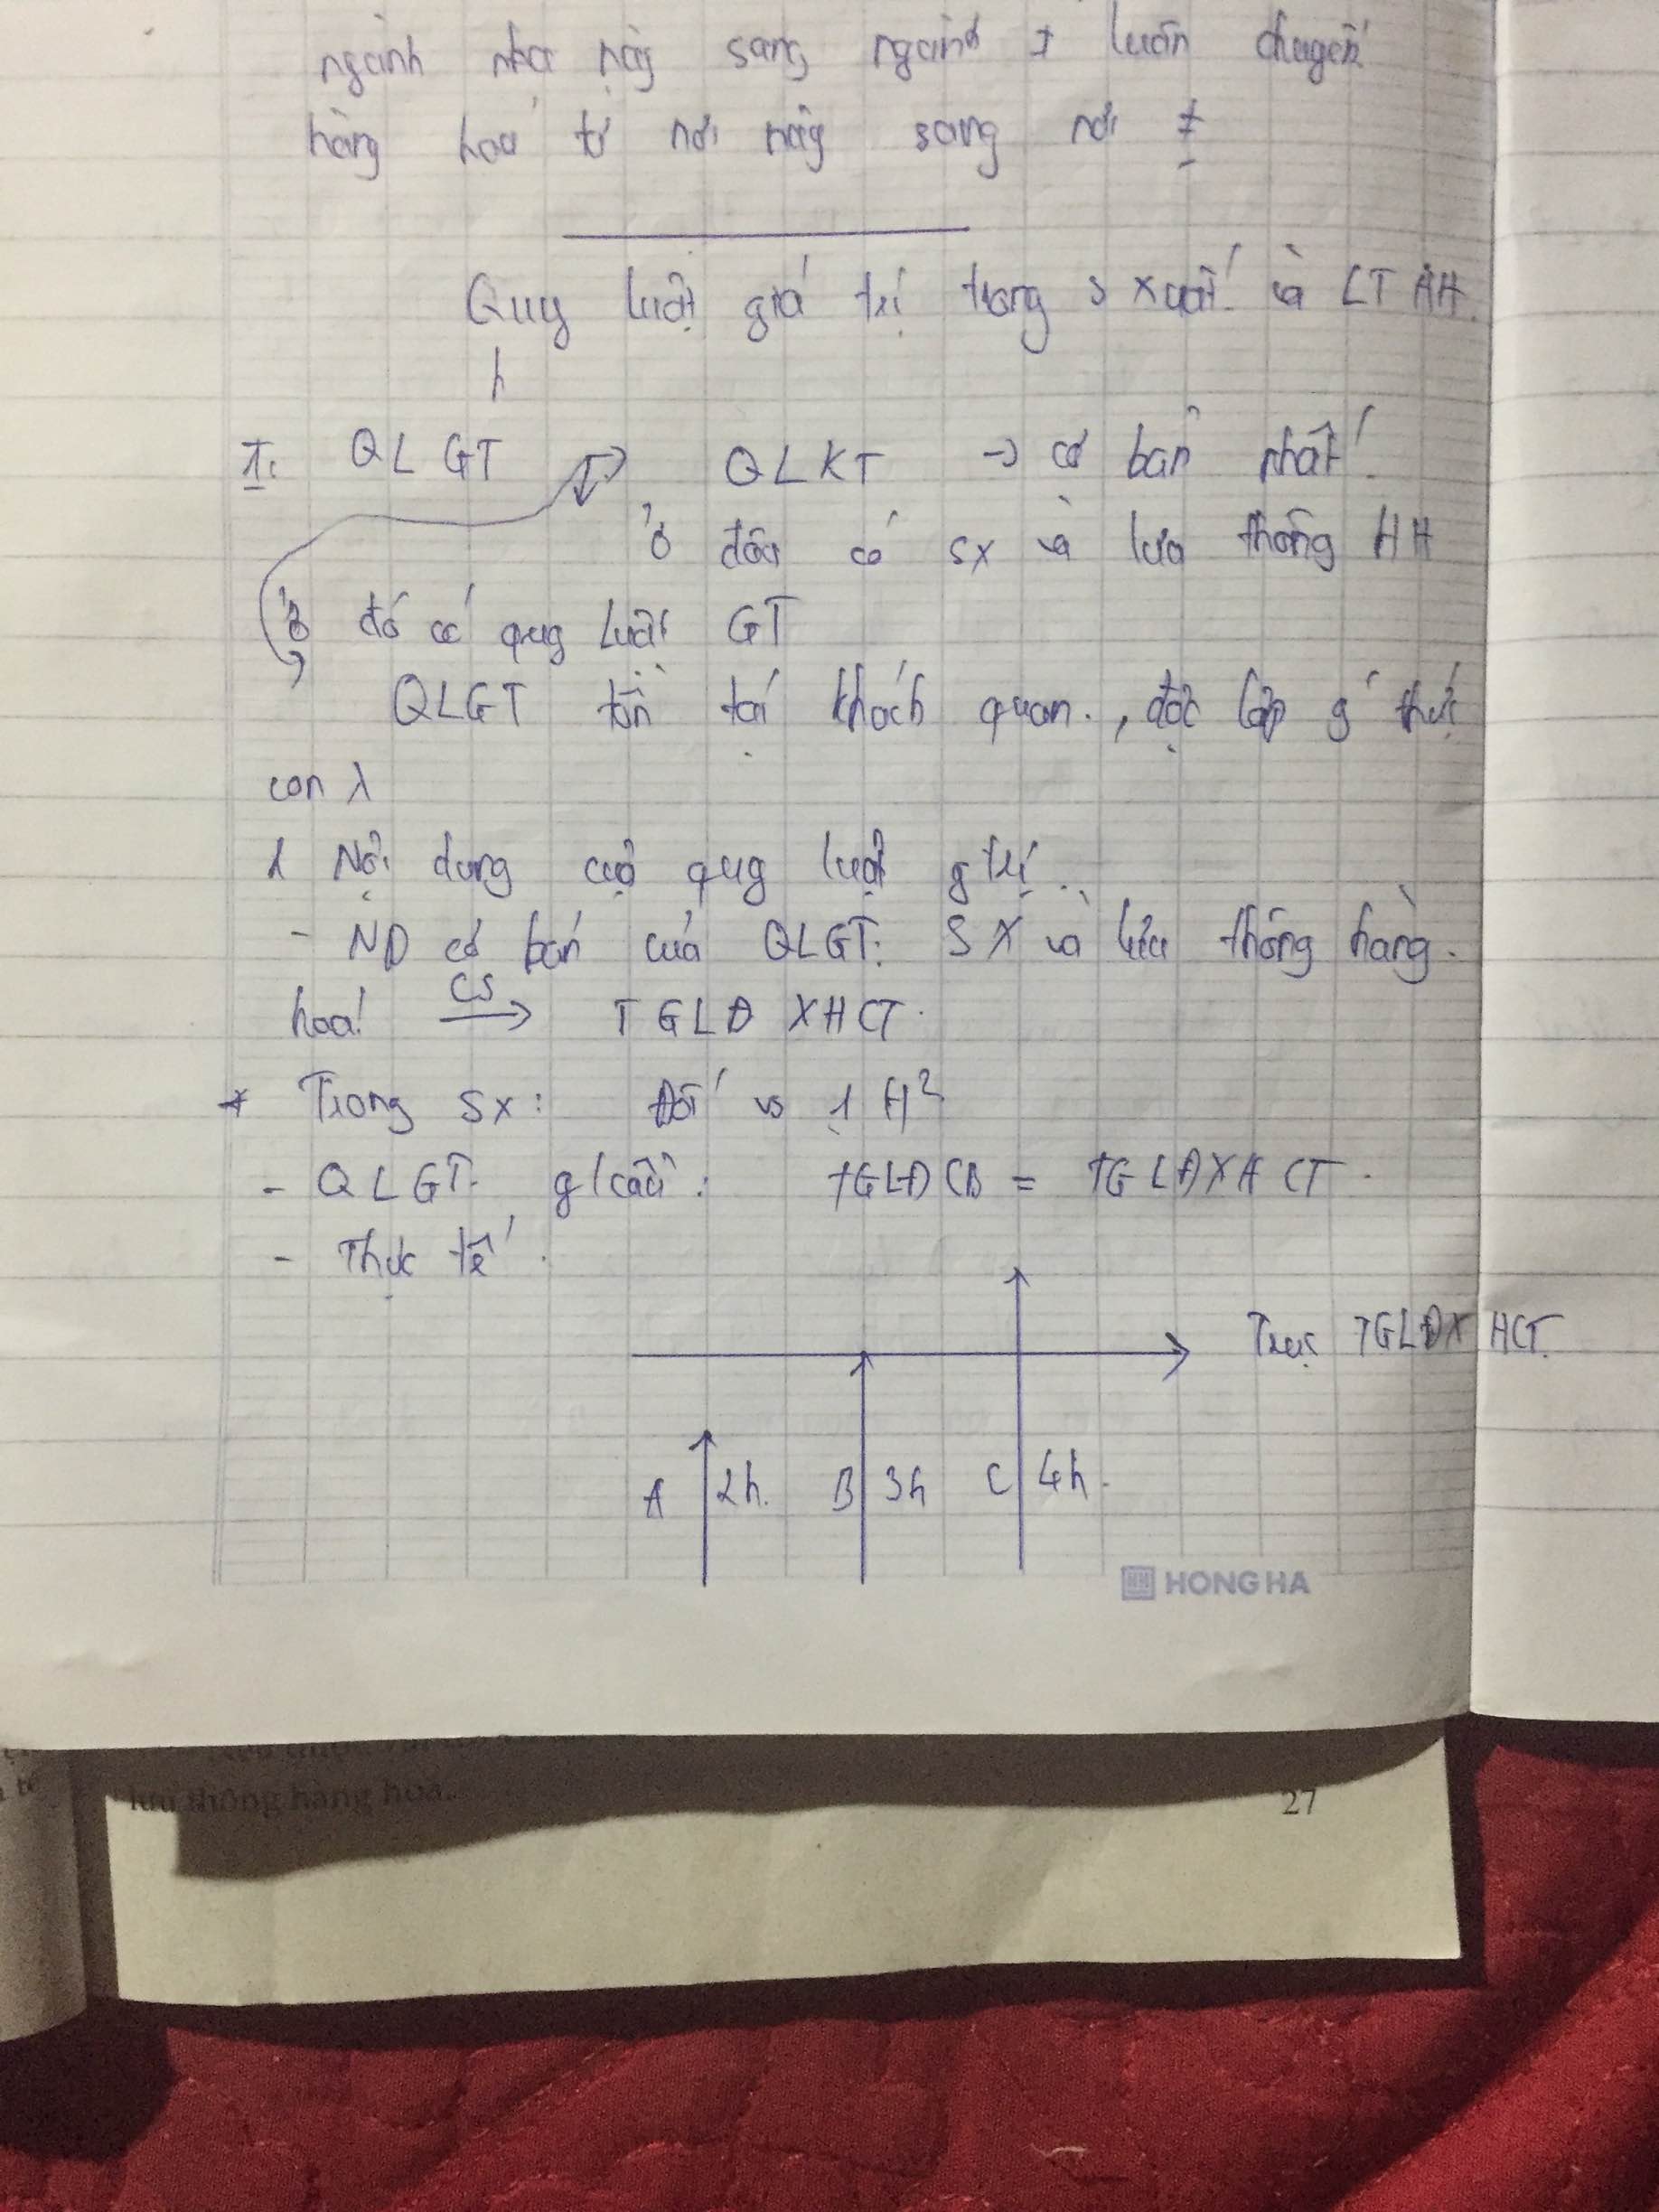 ngành nhạ này sang ngành ≠ luân chuyển
hàng hoá từ nơi này sang nơi ≠
Quy luật giá trị trong s xuất và LT HH.
I: QLGT QLKT → cơ bản nhất
Ở đâu có sx và lưu thông HH
Ở đó có quy luật GT
QLGT tồn tại khách quan., độc lập ý thức
con λ
1 Nội dung của quy luật g trị.
- ND cơ bản của QLGT: SX và lưu thông hàng.
hoá CS → TGLĐ XHCT.
* Trong sx: Đối vs 1 H²
- QLGT. y/cầu: TGLĐCB = TGLĐXHCT.
- Thực tế.
Trục TGLĐXHCT.
A 2h. B 3h C 4h.
HONG HA
lưu thông hàng hoá.
27